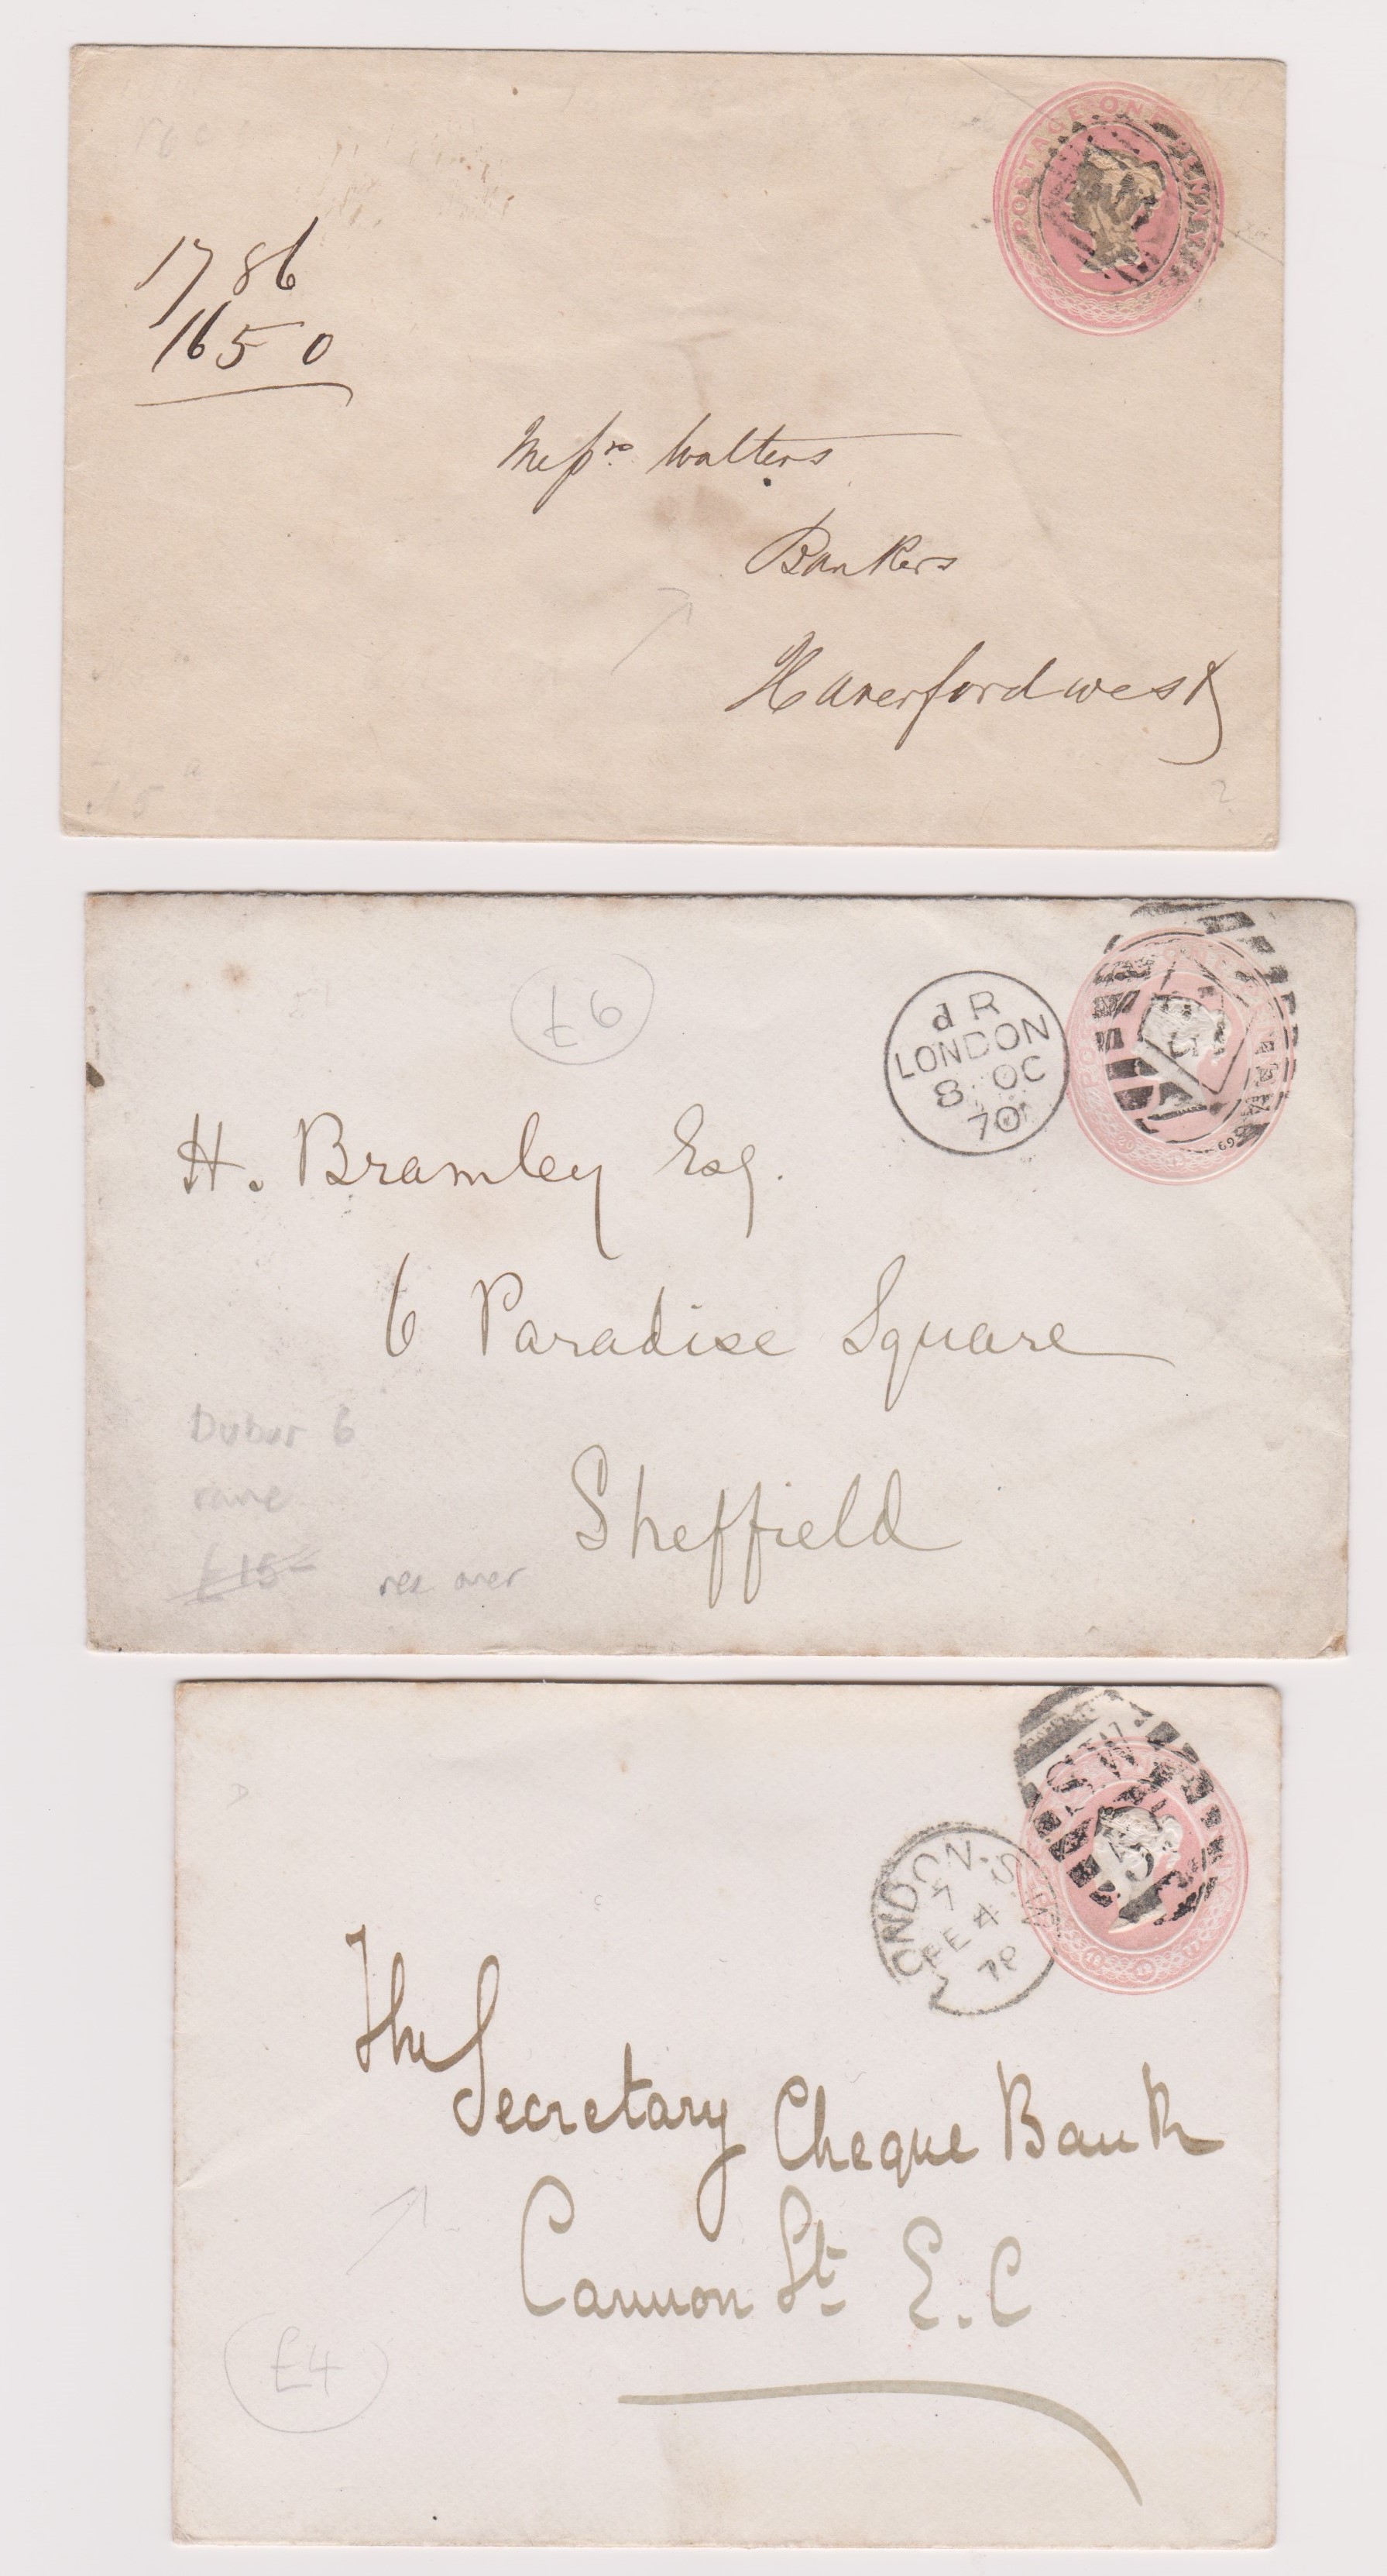 POSTAGE ONE PENNY
1786
1650
Messrs. Walters
Bankers
Haverfordwest
£6
dR
LONDON
8 OC
70
H. Bramley Esq.
6 Paradise Square
Sheffield
Dubus 6
rare
£15
see over
LONDON. S.W
7
FE 4
78
SW
5
The
Secretary Cheque Bank
Cannon St. E.C
£4